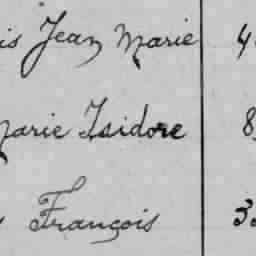 is Jean Marie 4
Marie Isidore 8
François 3